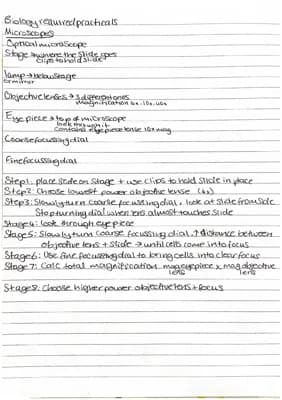 Biology required practicals
Microscopes
Optical microscope
Stage → where the slide goes
clips to hold slide
lamp → below stage
or mirror
Objective lenses → 3 different ones
magnification 4x, 10x, 40x
Eye piece → top of microscope
look through it
contains eyepiece lense 10x mag
Coarse focussing dial
Fine focussing dial
Step1: place slide on stage + use clips to hold slide in place
Step2: Choose lowest power objective lense (4x)
Step3: Slowly turn coarse focussing dial, look at slide from side
Stop turning dial when lens almost touches slide
Stage4: look through eyepiece
Stage5: Slowly turn coarse focussing dial, ↑ distance between
objective lens + slide → until cells come into focus
Stage6: Use fine focussing dial to bring cells into clear focus
Stage7: Calc total magnification mag eyepiece x mag objective
lens lens
Stage8: Choose higher power objective lens + focus